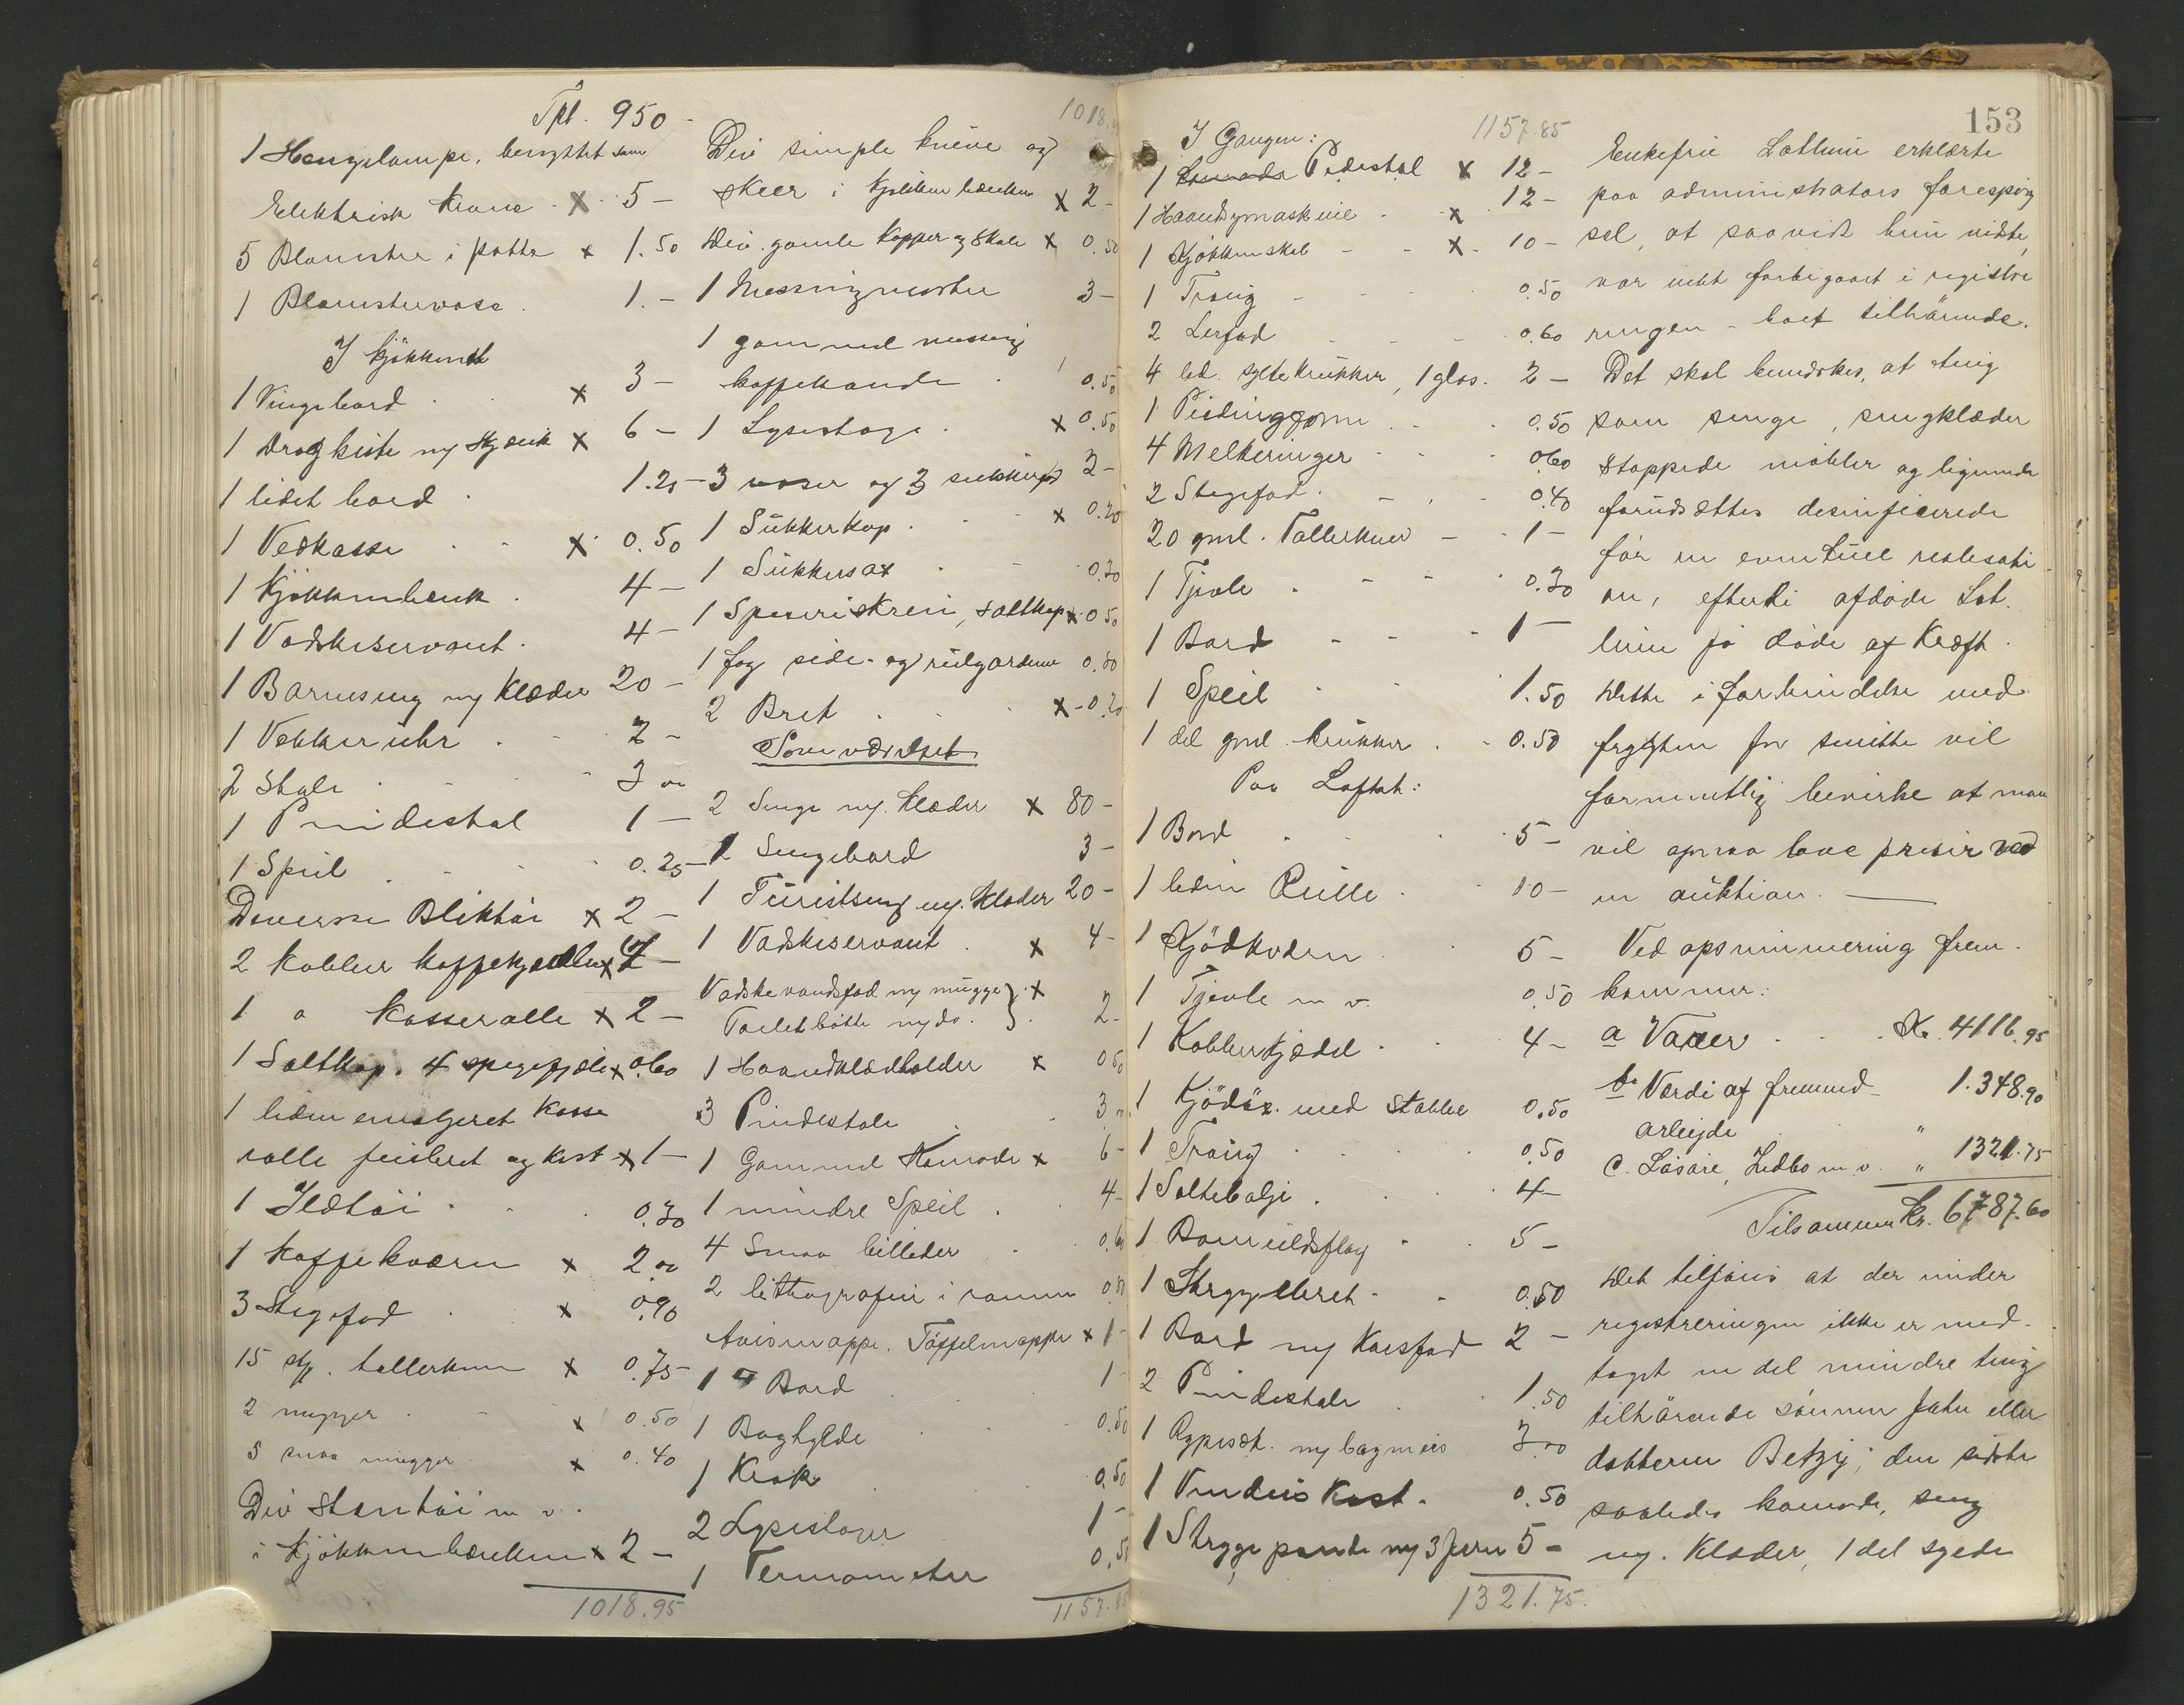 Tpt. 950 -
1 Hengelampe, benyttet som
Elektrisk Krone x 5 -
5 Blomster i potte x 1.50
1 Blomstervase. 1. -
I kjökkenet
1 Vingebord x 3 -
1 Dragkiste og Hjørne x 6 -
1 lidet bord 1.25
1 Vedkasse x 0.50
1 Kjökkenbenk. 4 -
1 Vadskeservant. 4 -
1 Barneseng m/ Klæder 20 -
1 Vekkeruhr 2 -
2 Stole 3 00
1 Pindestol 1 -
1 Speil 0.25
Diverse Bliktöi x 2 -
2 Kobber kaffekjedler x 7 -
1 " Kasserolle x 2 -
1 Saltkop. 4 spegefjæle x 0.60
1 liden emaljeret Kasse
rolle feiebret og kost x 1 -
1 Ildtöi 0.30
1 Kaffekværn x 2.00
3 Stegefad x 0.90
15 stk. tallerkener x 0.75
2 mugger x 0.50
5 smaa mugger x 0.40
Div Stentöi m v.
i Kjökkenbænken x 2 -
1018.95
1018.95
Div simple knive og
skeer i kjökken bænken x 2 -
Div. gamle Kopper og Skale x 0.50
1 Messingmorter 3 -
1 gammel messing
kaffekande 0.50
1 Lysestage x 0.50
3 vaser og 3 sukkerfad 2 -
1 Sukkerkop x 0.20
1 Sukkersax 0.30
1 Speseriskrin, saltkop x 0.50
1 fag side- og rulgardiner 0.80
2 Bret x - 0.20
Soveværelset
2 Senge m/ Klæder x 80 -
1 Sengebord 3 -
1 Turistseng m/ Klæder 20 -
1 Vadskeservant x 4 -
Vadskevandsfad m/ mugge } x
Toiletbötte m/ do. } 2 -
1 Haandklædholder x 0.50
3 Pindestole 3 -
1 Gammel Komode x 6 -
1 mindre Speil 4 -
4 Smaa billeder 0.60
2 lithografier i ramme 0.80
Avismappe. Töffelmappe x 1 -
1 Bord 1 -
1 Boghylde 0.50
1 Krak 0.50
2 Lysestager 1 -
1 Termometer 0.50
1157.85
153
I Gangen: 1157.85
1 Pidestal x 12 -
1 Haandsymaskine x 12 -
1 Kjökkenskab x 10 -
1 Traug 0.50
2 Lerfad 0.60
4 led. syltekrukker, 1 glas. 2 -
1 Pudingform 0.50
4 Melkeringer 0.60
2 Stegefad 0.40
20 gml. Tallerkener 1 -
1 Tjæle 0.30
1 Bord 1 -
1 Speil 1.50
1 del gml krukker 0.50
Paa Loftet:
1 Bord 5 -
1 liden Rulle 10 -
1 Kjödkværn 5 -
1 Tjæle m v. 0.50
1 Kobberkjedel 4 -
1 Kjödöx. med Stabbe 0.50
1 Traug 0.50
1 Saltebalje 4 -
1 Bomuldsflag 5 -
1 Strygebret 0.50
1 Bord m/ Karsfad 2 -
2 Pindestole 1.50
1 Rypesæk m/ bagmeis 3.00
1 Vinduskost. 0.50
1 Strygepande m/ 3 Jern 5 -
1321.75.
Enkefru Lothun erklærte
paa administrators forespörg
sel, at saavidt hun vidste,
var intet forbigaaet i registre
ringen - boet tilhörende.
Det skal bemerkes, at ting
som senge, sengklæder
stoppede möbler og lignende
forudsættes desinficerede
för en eventuel realisati
on, efterdi afdöde Lot.
hun jo döde af Kræft.
Dette i forbindelse med
frygten for smitte vil
formentlig bevirke at man
vil opnaa lave priser ved
en auktion. —
Ved opsummering frem-
kommer:
a Varer Kr. 4116.95
b. Værdi af fremmed 1.348.90
arbeide "
c. Lösöre, Indbo m v. " 1321.75
Tilsammen Kr. 6787.60
Det tilföies at der under
registreringen ikke er med-
taget en del mindre ting
tilhörende sönnen eller
datteren Betzy; den sidste
saaledes komode, seng
m/ Klæder, 1 del syede